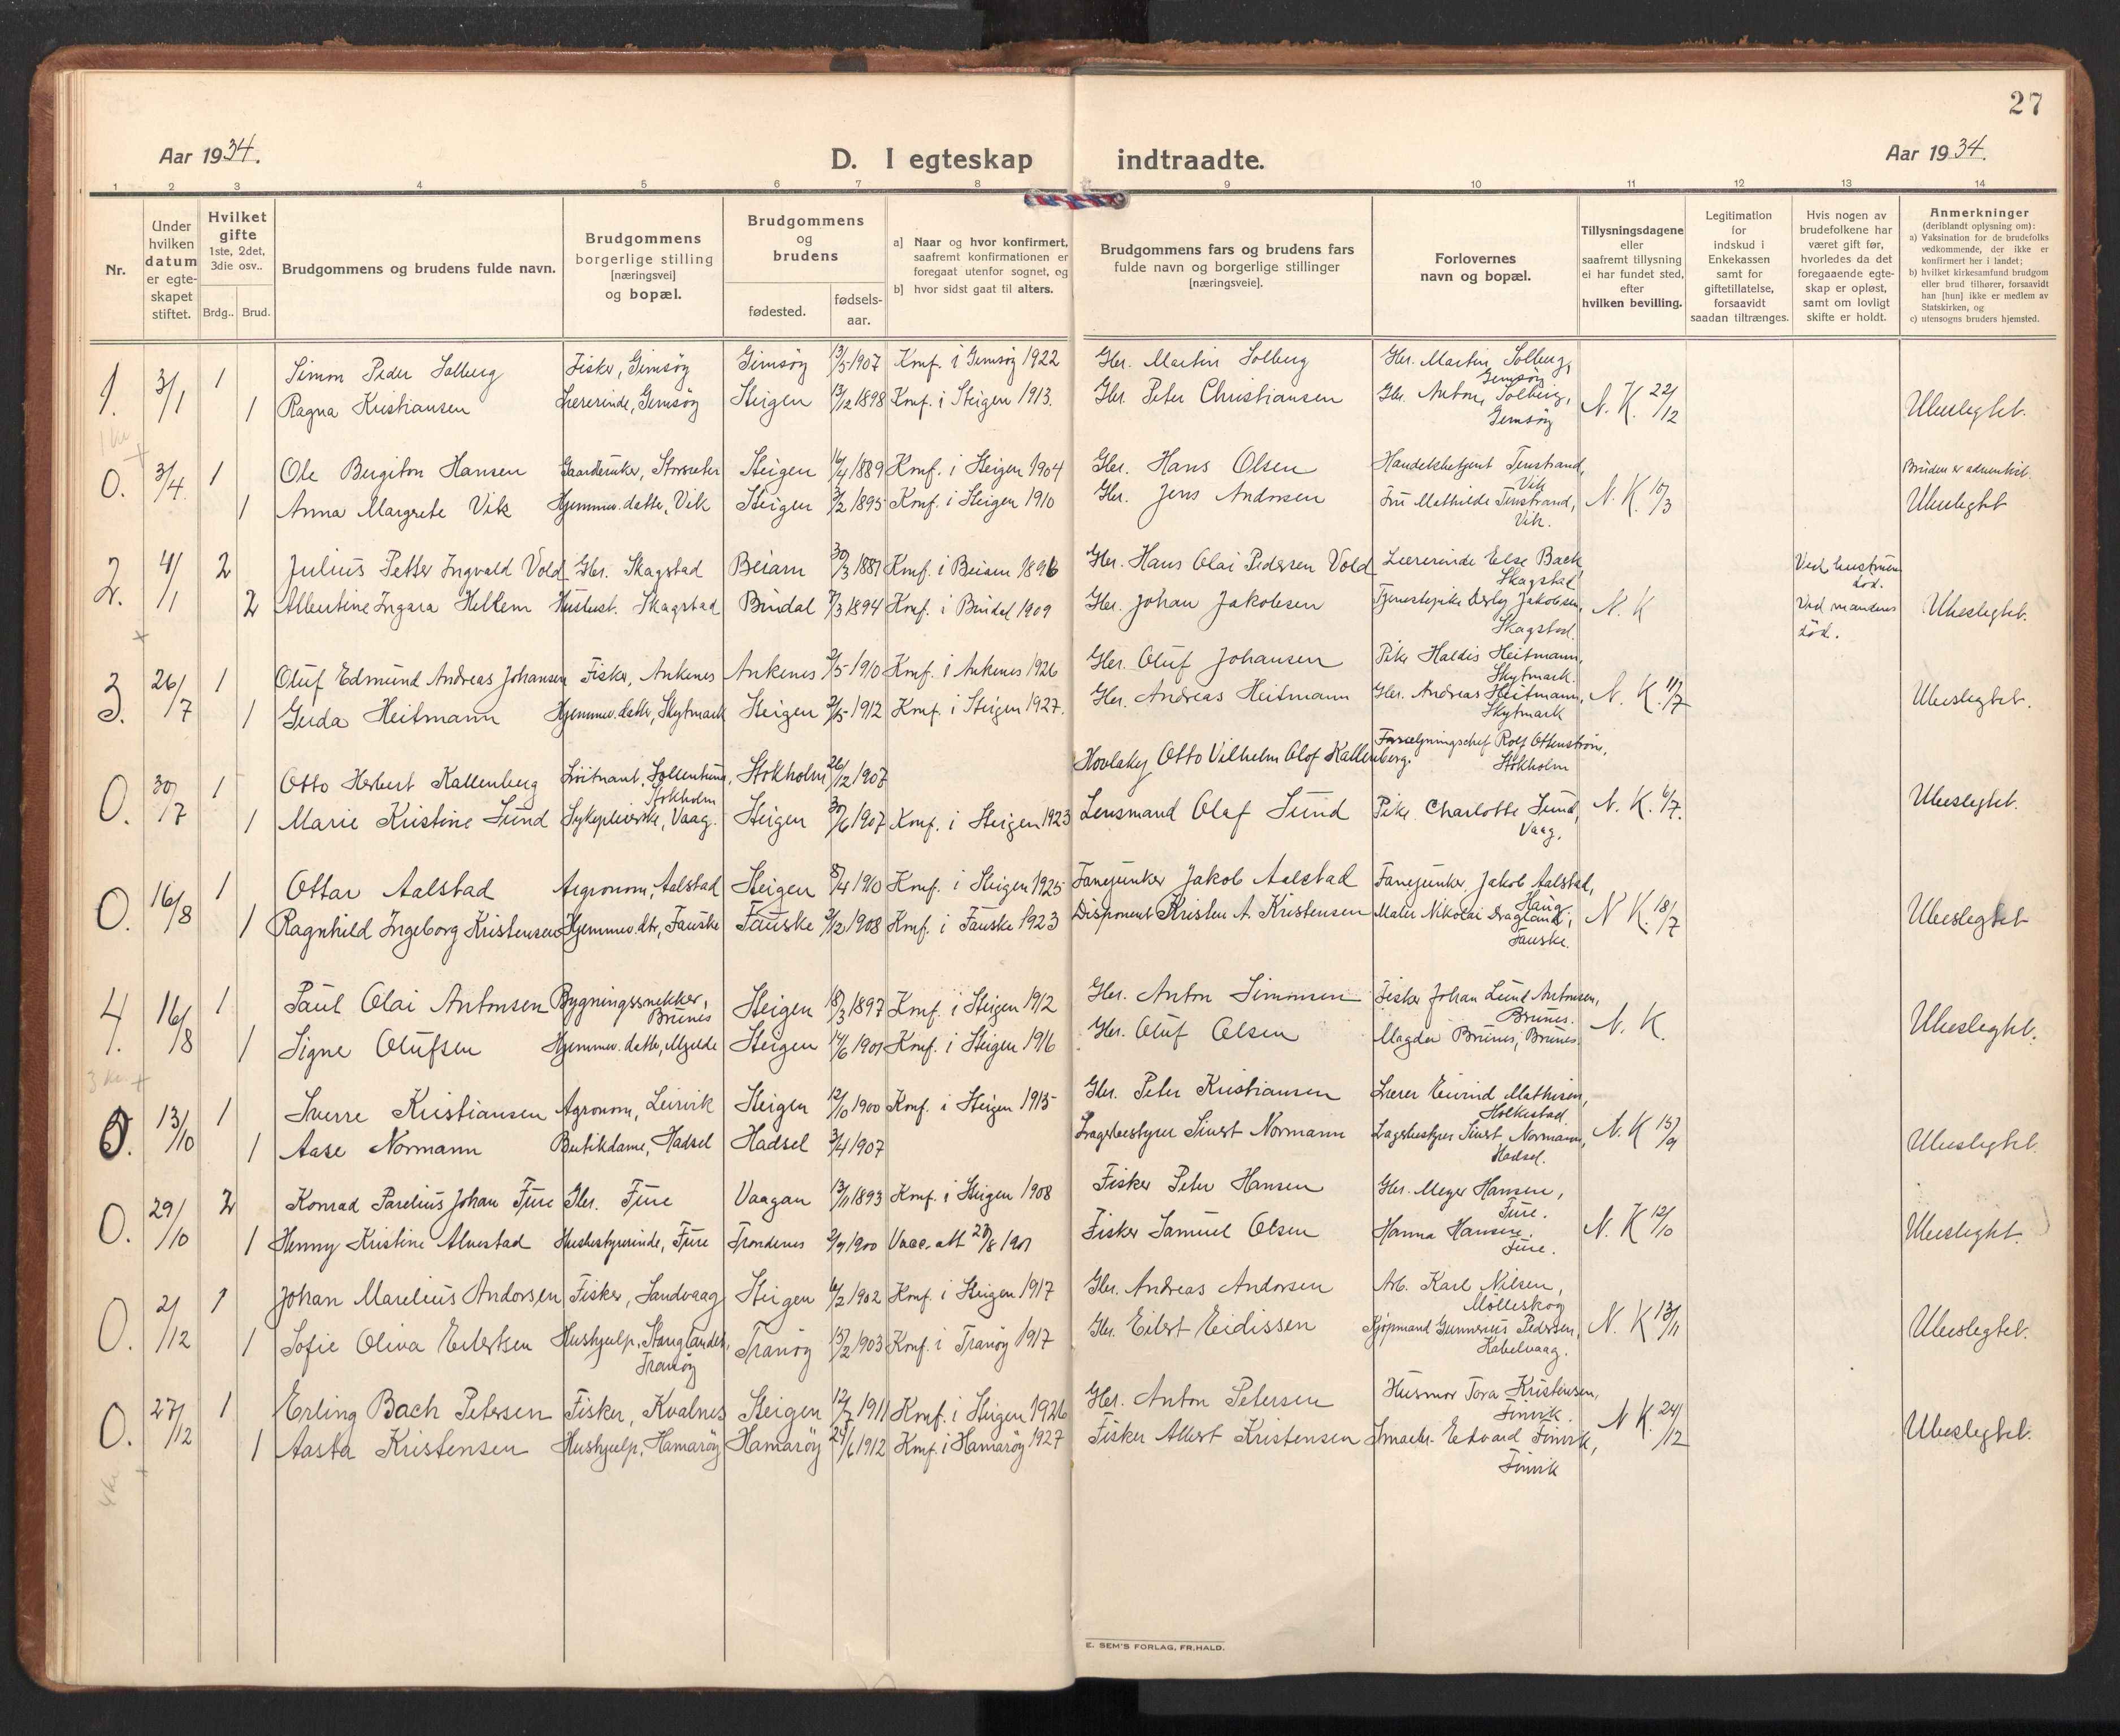 27
Aar 1934.
D. I egteskap indtraadte.
Aar 1934.
1 2 3 4 5 6 7 8 9 10 11 12 13 14
Nr.
Under hvilken datum er egte-skapet stiftet.
Hvilket gifte 1ste, 2det, 3die osv..
Brdg.. Brud.
Brudgommens og brudens fulde navn.
Brudgommens borgerlige stilling [næringsvei] og bopæl.
Brudgommens og brudens
fødested. fødsels-aar.
a] Naar og hvor konfirmert, saafremt konfirmationen er foregaat utenfor sognet, og
b] hvor sidst gaat til alters.
Brudgommens fars og brudens fars fulde navn og borgerlige stillinger [næringsveie].
Forlovernes navn og bopæl.
Tillysningsdagene eller saafremt tillysning ei har fundet sted, efter hvilken bevilling.
Legitimation for indskud i Enkekassen samt for giftetillatelse, forsaavidt saadan tiltrænges.
Hvis nogen av brudefolkene har været gift før, hvorledes da det foregaaende egte-skap er opløst, samt om lovligt skifte er holdt.
Anmerkninger (deriblandt oplysning om):
a) Vaksination for de brudefolks vedkommende, der ikke er konfirmert her i landet;
b) hvilket kirkesamfund brudgom eller brud tilhører, forsaavidt han [hun] ikke er medlem av Statskirken, og
c) utensogns bruders hjemsted.
1. 3/1 1 Simon Peder Solberg Fisker, Gimsöy Gimsöy 13/5 1907 Konf. i Gimsöy 1922 Gbr. Martin Solberg Gbr. Martin Solberg, Gimsöy
1 Ragna Kristiansen Lærerinde, Gimsöy Steigen 13/12 1898 Konf. i Steigen 1913. Gbr. Peter Christiansen Gbr. Anton Solberg, Gimsöy N. K. 22/12 Ubeslegtet.
0. 3/4 1 Ole Bergiton Hansen Gaardbruker, Storsæter Steigen 16/4 1889 Konf. i Steigen 1904 Gbr. Hans Olsen Handelsbetjent Tenstrand, Vik Bruden er adventist.
1 Anna Margrete Vik Hjemmev. datter, Vik Steigen 3/2 1895 Konf. i Steigen 1910 Gbr. Jens Andorsen Fru Mathilde Tenstrand, Vik. N. K. 15/3 Ubeslegtet
2. 4/1 2 Julius Petter Ingvald Vold Gbr. Skagstad Beiarn 30/3 1881 Konf. i Beiarn 1896 Gbr. Hans Olai Pedersen Vold Lærerinde Else Back Skagstad Ved hustruens död.
2 Albertine Ingara Hellem Husbest. Skagstad Bindal 3 1894 Konf. i Bindal 1909 Gbr. Johan Jakobsen Tjenestepike Jakobsen, Skagstad. N. K Ved mandens död. Ubeslegtet.
3. 26/7 1 Oluf Edmund Andreas Johansen Fisker, Ankenes Ankenes 2/5 1910 Konf. i Ankenes 1926 Gbr. Oluf Johansen Pike Haldis Heitmann, Skytmark.
1 Gerda Heitmann Hjemmev. datter, Skytmark Steigen 5 1912 Konf. i Steigen 1927. Gbr. Andreas Heitmann Gbr. Andreas Heitmann, Skytmark N. K. 11/7 Ubeslegtet.
0. 30/7 1 Otto Herbert Kallenberg Löitnant, Sollentuna, Stokholm Stokholm 26/12 1907 Otto Vilhelm Olof Kallenberg. Forsikringschef Rolf Ottenström, Stokholm
1 Marie Kristine Sund Sykepleierske, Vaag. Steigen 30/6 1907 Konf. i Steigen 1923 Lensmand Olaf Sund Pike Charlotte Sund, Vaag. N. K. 6/7. Ubeslegtet.
0. 16/8 1 Ottar Aalstad Agronom, Aalstad Steigen 8/4 1910 Konf. i Steigen 1925 Fanejunker Jakob Aalstad Fanejunker Jakob Aalstad, Haug
1 Ragnhild Ingeborg Kristensen Hjemmev. dtr, Fauske Fauske 2/12 1908 Konf. i Fauske 1923 Disponent Kristen A. Kristensen Maler Nikolai Dragland, Fauske. N K. 18/7 Ubeslegtet
4. 16/8 1 Paul Olai Antonsen Bygningssnekker, Brunes Steigen 18/3 1897 Konf. i Steigen 1912 Gbr. Anton Simonsen Fisker Johan Lund Antonsen, Brunes.
1 Signe Olufsen Hjemmev. datter, Mjelde Steigen 14/6 1901 Konf. i Steigen 1916 Gbr. Oluf Olsen Magda Brunes, Brunes. N. K. Ubeslegtet.
0. 13/10 1 Sverre Kristiansen Agronom, Leirvik Steigen 12/10 1900 Konf. i Steigen 1915 Gbr. Peter Kristiansen Lærer Eivind Mathisen, Holkestad
1 Aase Normann Butikdame, Hadsel Hadsel 3/4 1907 Lagerbestyrer Sivert Normann Lagerbestyrer Sivert Normann, Hadsel. N. K 15/9 Ubeslegtet.
0. 29/10 2 Konrad Parelius Johan Fure Gbr. Fure Vaagan 13/11 1893 Konf. i Steigen 1908 Fisker Peter Hansen Gbr. Meyer Hansen, Fure.
1 Henny Kristine Alvestad Husbestyrerinde, Fure Trondenes 2/9 1900 Vacc. att 8 1901 Fisker Samuel Olsen Hanna Hansen, Fure. N. K 12/10 Ubeslegtet.
0. 2/12 1 Johan Marelius Andorsen Fisker, Sandvaag Steigen 6/2 1902 Konf. i Steigen 1917 Gbr. Andreas Andorsen Arb. Karl Nilsen, Molleskog
1 Sofie Oliva Eilertsen Hushjælp, Stonglandet, Tranöy Tranöy 15/2 1903 Konf. i Tranöy 1917 Gbr. Eilert Eidissen Kjöpmand Gunnerius Pedersen, Kabelvaag. N. K 13/11 Ubeslegtet.
0. 27/12 1 Erling Bach Petersen Fisker, Kvalnes Steigen 12/7 1911 Konf. i Steigen 1926 Gbr. Anton Petersen Husmor Tora Kristensen, Finvik.
1 Aasta Kristensen Hushjælp, Hamaröy Hamaröy 29/6 1912 Konf. i Hamaröy 1927 Fisker Albert Kristensen Edvard Finvik, Finvik N K. 24/12 Ubeslegtet.
E. SEM'S FORLAG, FR.HALD.